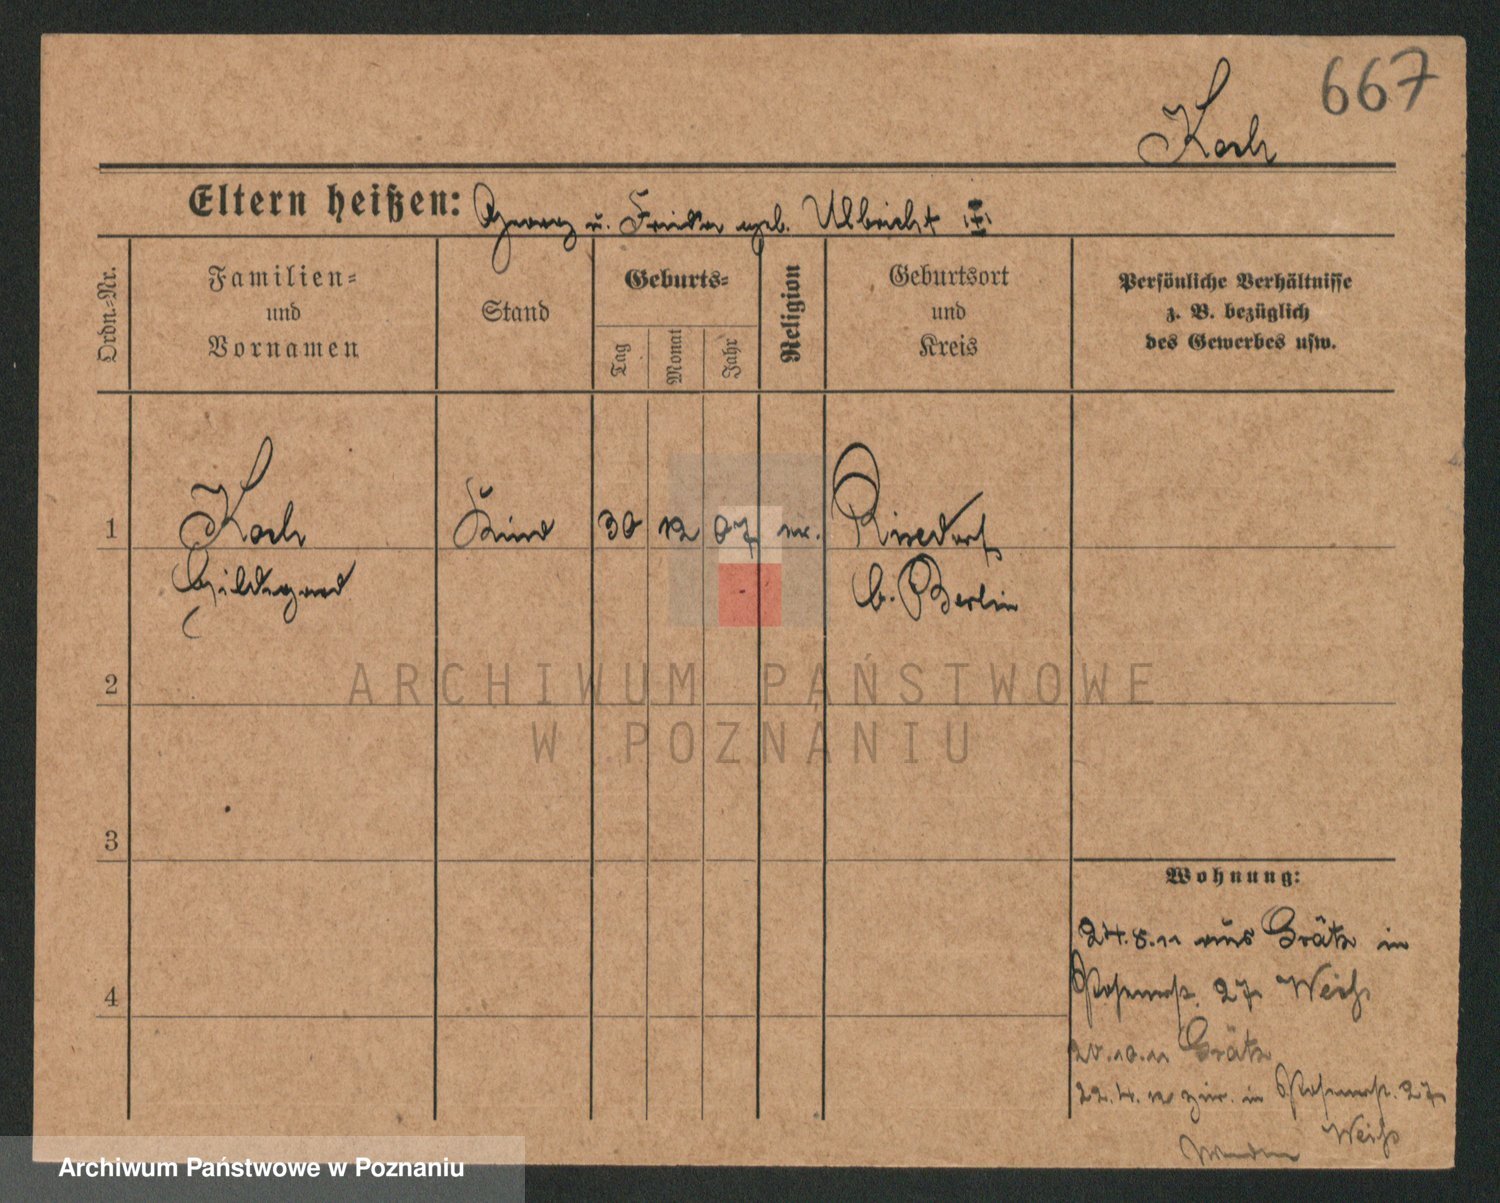 667
Koch
Eltern heißen: Georg u. Frieda geb. Ulbricht
Ordn.-Nr.
Familien-
und
Vornamen
Stand
Geburts-
Tag
Monat
Jahr
Religion
Geburtsort
und
Kreis
Persönliche Verhältnisse
z. B. bezüglich
des Gewerbes usw.
1
Koch
Hildegard
Kind
30
12
07
ev.
Rixdorf
b. Berlin
2
ARCHIWUM PAŃSTWOWE
W POZNANIU
3
4
Wohnung:
24.8.11 aus Grätz in
Posenerstr. 27 Weiß
20.10.11 Grätz
22.4.12 zur. in Posenerstr. 27
Weiß
Archiwum Państwowe w Poznaniu